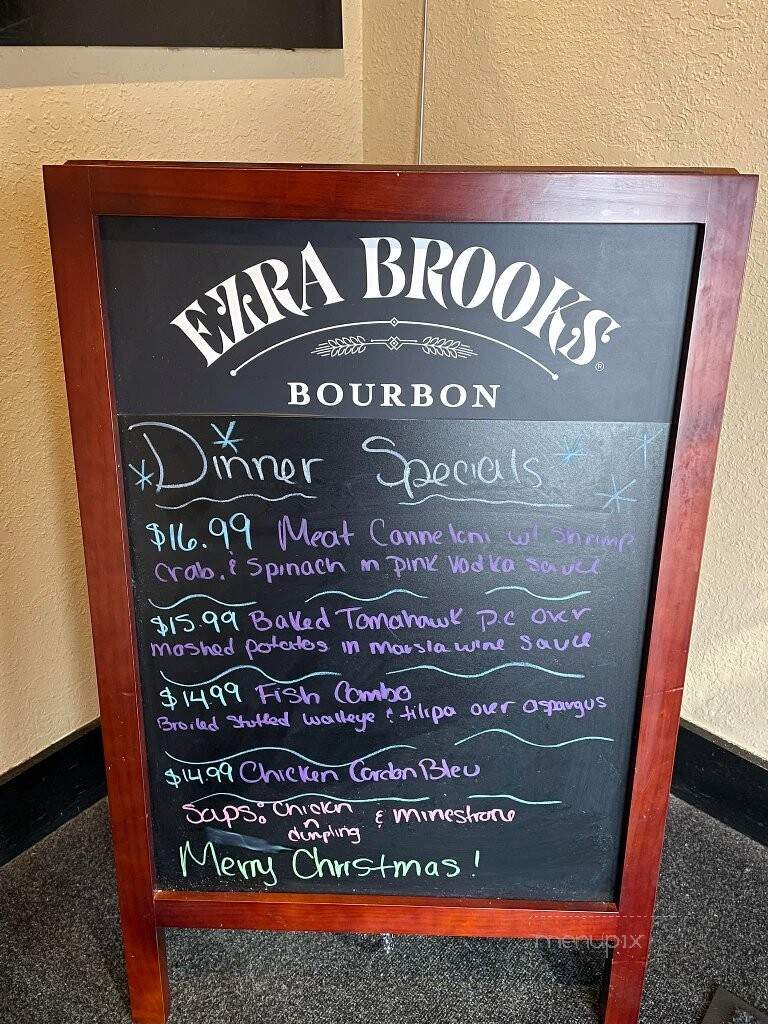 EZRA BROOKS®
BOURBON
Dinner Specials
$16.99 Meat Canneloni w/ Shrimp,
Crab, & Spinach in pink Vodka sauce
$15.99 Baked Tomahawk P.C over
mashed potatoes in marsla wine sauce
$14.99 Fish Combo
Broiled Stuffed walleye & tilipa over aspargus
$14.99 Chicken Cordon Bleu
Soups: Chickn n dumpling & minestrone
Merry Christmas!
menupix